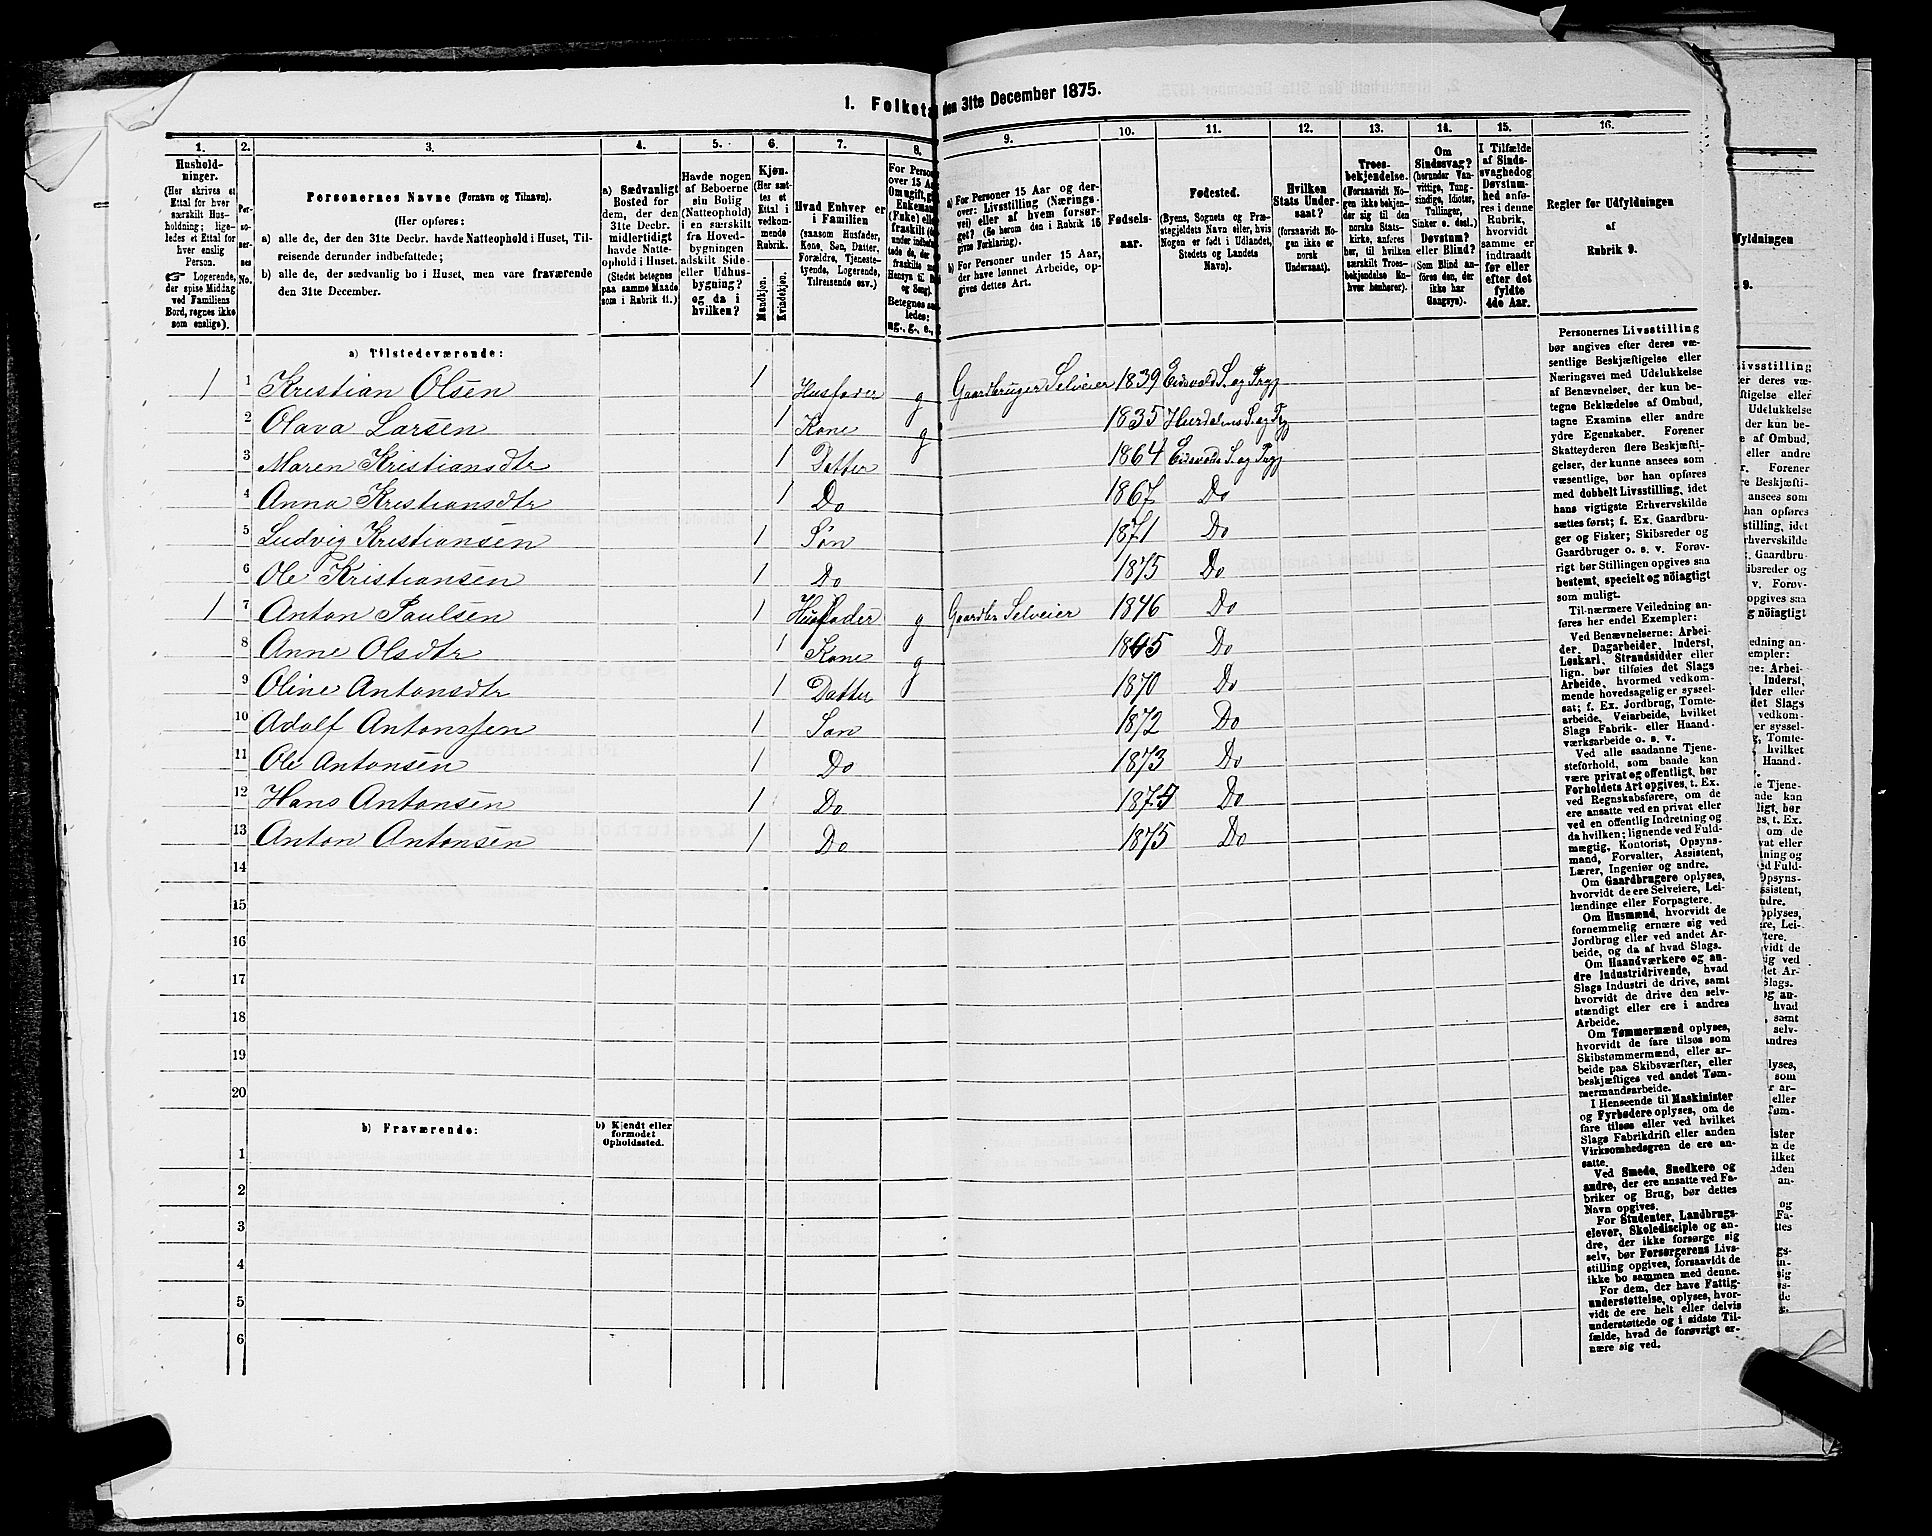 1. Folketal den 31te December 1875.
1.
2.
3.
4.
5.
6.
7.
8.
9.
10.
11.
12.
13.
14.
15.
16.
Hushold-
ninger.
(Her skrives et
Ettal for hver
særskilt Hus-
holdning; lige-
ledes et Ettal for
hver enslig
Person.
☞ Logerende,
der spise Middag
ved Familiens
Bord, regnes ikke
som enslige).
Per-
so-
ner-
nes
No.
Personernes Navne (Fornavn og Tilnavn).
(Her opføres:
a) alle de, der den 31te Decbr. havde Natteophold i Huset, Til-
reisende derunder indbefattede;
b) alle de, der sædvanlig bo i Huset, men vare fraværende
den 31te December.
a) Sædvanligt
Bosted for
dem, der den
31te Decbr.
midlertidigt
havde Natte-
ophold i Huset.
(Stedet betegnes
paa samme Maade
som i Rubrik 11.)
Havde nogen
af Beboerne
sin Bolig
(Natteophold)
i en særskilt
fra Hoved-
bygningen
adskilt Side-
eller Udhus-
bygning?
og da i
hvilken?
Kjøn.
(Her sæt-
tes et
Ettal i
vedkom-
mende
Rubrik.
Mandkjøn.
Kvindekjøn.
Hvad Enhver er
i Familien
(saasom Husfader,
Kone, Søn, Datter,
Forældre, Tjeneste-
tyende, Logerende,
Tilreisende osv.)
For Person
over 15 Aa
Om ugift, g
Enkeman
(Fnke) elle
fraskilt (d
under indbef
tede de, der
fraskilte m
Hensyn til B
og Seng).
Betegnes saa
ledes:
ug., g., e.,
a) For Personer 15 Aar og der-
over: Livsstilling (Nærings-
vei) eller af hvem forsør-
get? (Se herom den i Rubrik 16
givne Forklaring).
b) For Personer under 15 Aar,
der have lønnet Arbeide, op-
gives dettes Art.
Fødsels-
aar.
Fødested.
(Byens, Sognets og Præ-
stegjeldets Navn eller, hvis
Nogen er født i Udlandet,
Stedets og Landets
Navn).
Hvilken
Stats Under-
saat?
(forsaavidt No-
gen ikke er
norsk
Undersaat).
Troes-
bekjendelse.
(Forsaavidt No-
gen ikke bekjen-
der sig til den
norske Stats-
kirke, anføres
her, til hvilken
særskilt Troes-
bekjendelse En-
hver henhører).
Om
Sindssvag?
(herunder Van-
vittige, Tung-
sindige, Idioter,
Tullinger,
Sinker o. desl.)
Døvstum?
eller Blind?
(Som Blind an-
føres den, der
ikke har
Gangsyn).
I Tilfælde
af Sinds-
svaghed og
Døvstum-
hed anfø-
res i denne
Rubrik,
hvorvidt
samme er
indtraadt
før eller
efter det
fyldte
4de Aar.
Regler for Udfyldningen
af
Rubrik 9.
a) Tilstedeværende:
1 1 Kristian Olsen 1 Husfader g Gaardbruger Selveier 1839 Eidsvold S. og Prgj
2 Olava Larsen 1 Kone g 1835 Hurdalens S. og Prgj
3 Maren Kristiansdtr 1 Datter 1864 Eidsvolds S. og Prgj
4 Anna Kristiansdtr 1 Do 1867 Do
5 Ludvig Kristiansen 1 Søn 1871 Do
6 Ole Kristiansen 1 Do 1875 Do
1 7 Anton Paulsen 1 Husfader g Gaardbr Selveier 1846 Do
8 Anne Olsdtr 1 Kone g 1845 Do
9 Oline Antonsdtr 1 Datter 1870 Do
10 Adolf Antonssen 1 Søn 1872 Do
11 Ole Antonsen 1 Do 1873 Do
12 Hans Antonsen 1 Do Do
13 Anton Antonsen 1 Do 1875 Do
14
15
16
17
18
19
20
b) Fraværende:
b) Kjendt eller
formodet
Opholdssted.
1
2
3
4
5
6
Personernes Livsstilling
bør angives efter deres væ-
sentlige Beskjæftigelse eller
Næringsvei med Udelukkelse
af Benævnelser, der kun be-
tegne Beklædelse af Ombud,
tagne Examina eller andre
ydre Egenskaber. Forener
Skatteyderen flere Beskjæfti-
gelser, der kunne ansees som
væsentlige, bør han opføres
med dobbelt Livsstilling, idet
hans vigtigste Erhvervskilde
sættes først; f. Ex. Gaardbru-
ger og Fisker; Skibsreder og
Gaardbruger o. s. v. Forøv-
rigt bør Stillingen opgives saa
bestemt, specielt og nøiagtigt
som muligt.
Til nærmere Veiledning an-
føres her endel Exempler:
Ved Benævnelserne: Arbei-
der, Dagarbeider, Inderst,
Løskarl, Strandsidder eller
lign. bør tilføies det Slags
Arbeide, hvormed vedkom-
mende hovedsagelig er syssel-
sat; f. Ex. Jordbrug, Tomte-
arbeide, Veiarbeide, hvilket
Slags Fabrik- eller Haand-
værksarbeide o. s. v.
Ved alle saadanne Tjene-
steforhold, som baade kan
være privat og offentligt, bør
Forholdets Art opgives, t. Ex.
ved Regnskabsførere, om de
ere ansatte ved en privat eller
ved en offentlig Indretning og
da hvilken; lignende ved Fuld-
mægtig, Kontorist, Opsyns-
mand, Forvalter, Assistent,
Lærer, Ingeniør og andre.
Om Gaardbrugere oplyses,
hvorvidt de ere Selveiere, Lei-
lændinge eller Forpagtere.
Om Husmænd, hvorvidt de
fornemmelig ernære sig ved
Jordbrug eller ved andet Ar-
beide, og da af hvad Slags.
Om Haandværkere og an-
dre Industridrivende, hvad
Slags Industri de drive, samt
hvorvidt de drive den selv-
stændigt eller ere i andres
Arbeide.
Om Tømmermænd oplyses,
hvorvidt de fare tilsøs som
Skibstømmermænd, eller ar-
beide paa Skibsværfter, eller
beskjæftiges ved andet Tøm-
mermandsarbeide.
I Henseende til Maskinister
og Fyrbødere oplyses, om de
fare tilsøs eller ved hvilket
Slags Fabrikdrift eller anden
Virksomhedsgren de ere an-
satte.
Ved Smede, Snedkere og
andre, der ere ansatte ved Fa-
briker og Brug, bør dettes
Navn opgives.
For Studenter, Landbrugs-
elever, Skoledisciple og an-
dre, der ikke forsørge sig
selv, bør Forsørgerens Livs-
stilling opgives, forsaavidt de
ikke bo sammen med denne.
For dem, der have Fattig-
understøttelse, oplyses, hvor-
vidt de ere helt eller delvis
understøttede og i sidste Til-
fælde, hvad de forøvrigt er-
nære sig ved.